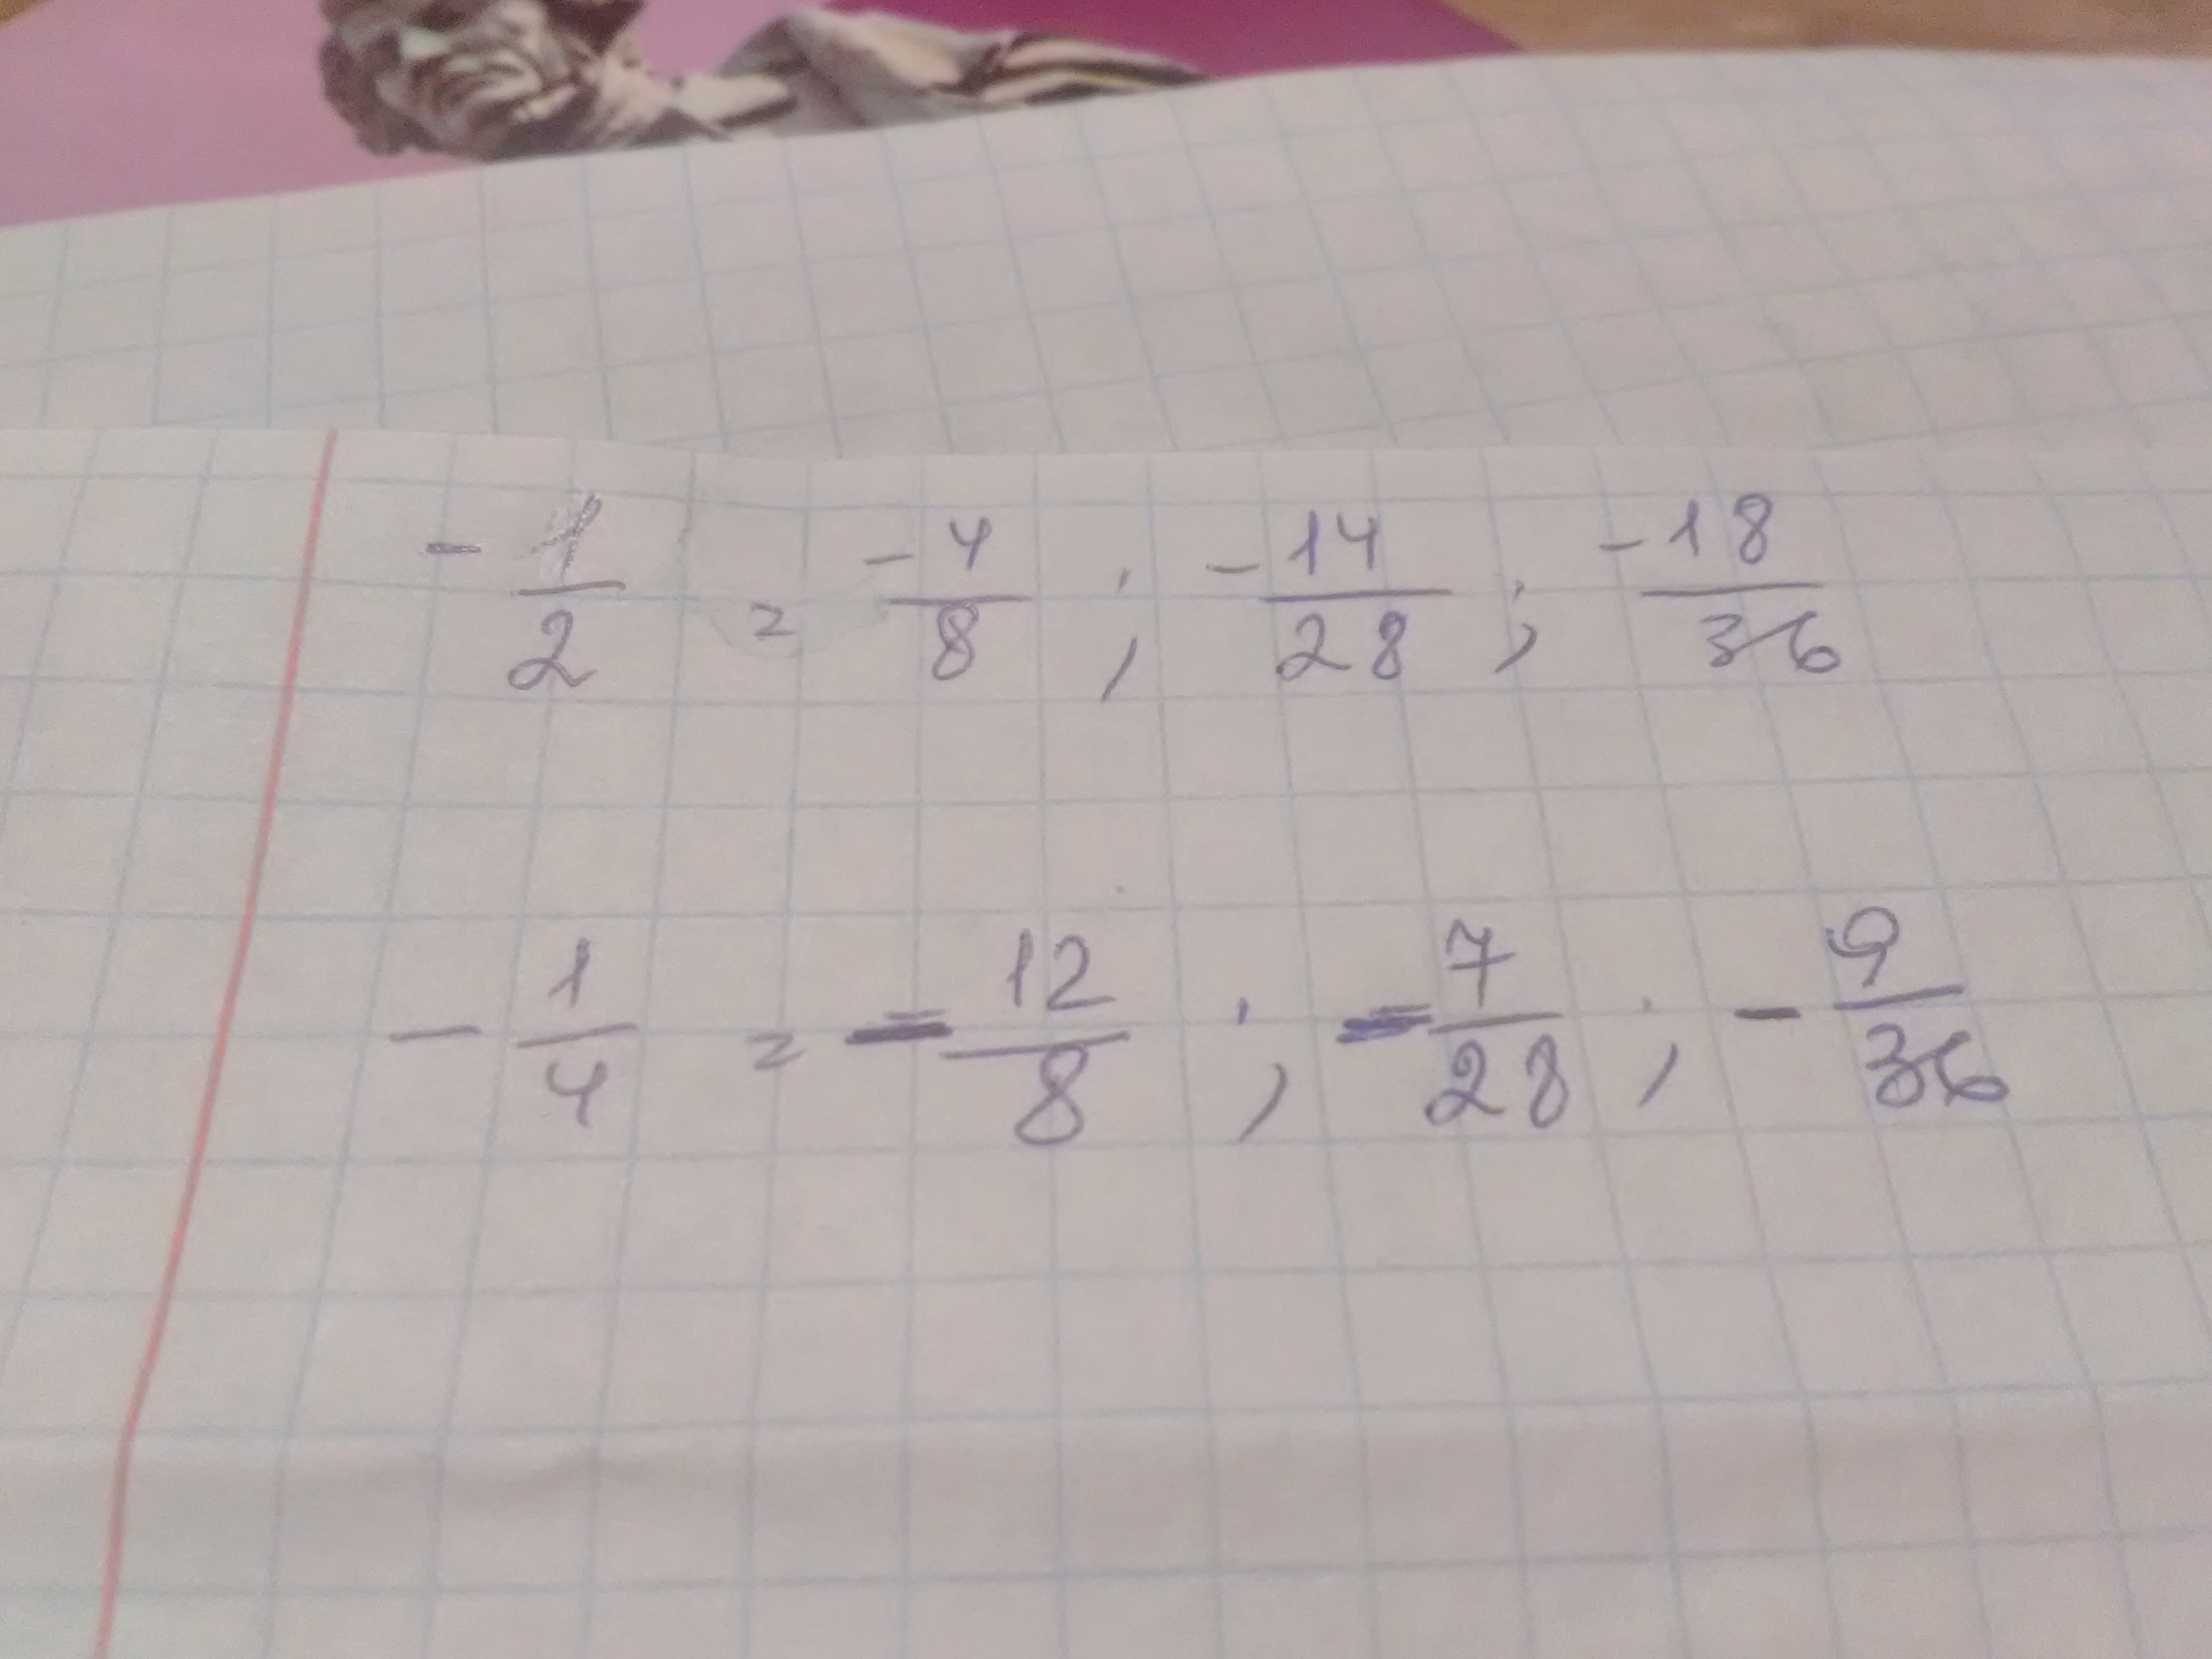 -1/2 = -4/8 ; -14/28 ; -18/36
-1/4 = -12/8 ; -7/28 ; -9/36